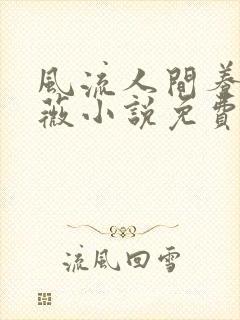 風流人間養
薇小說免費
流風回雪